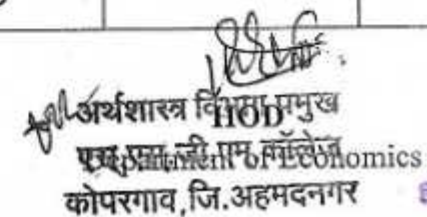 अर्थशास्त्र विभाग प्रमुख
HOD
एस.एस.जी.एम.कॉलेज
Department of Economics
कोपरगाव,जि.अहमदनगर